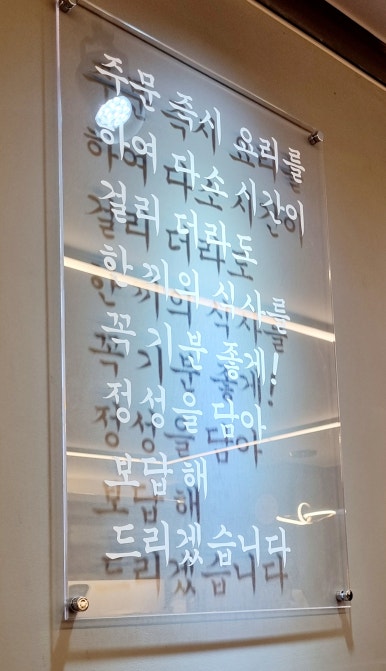 주문 즉시 요리를
하여 다소 시간이
걸리더라도
한 끼의 식사를
꼭 기분 좋게!
정성을 담아
보답 해
드리겠습니다